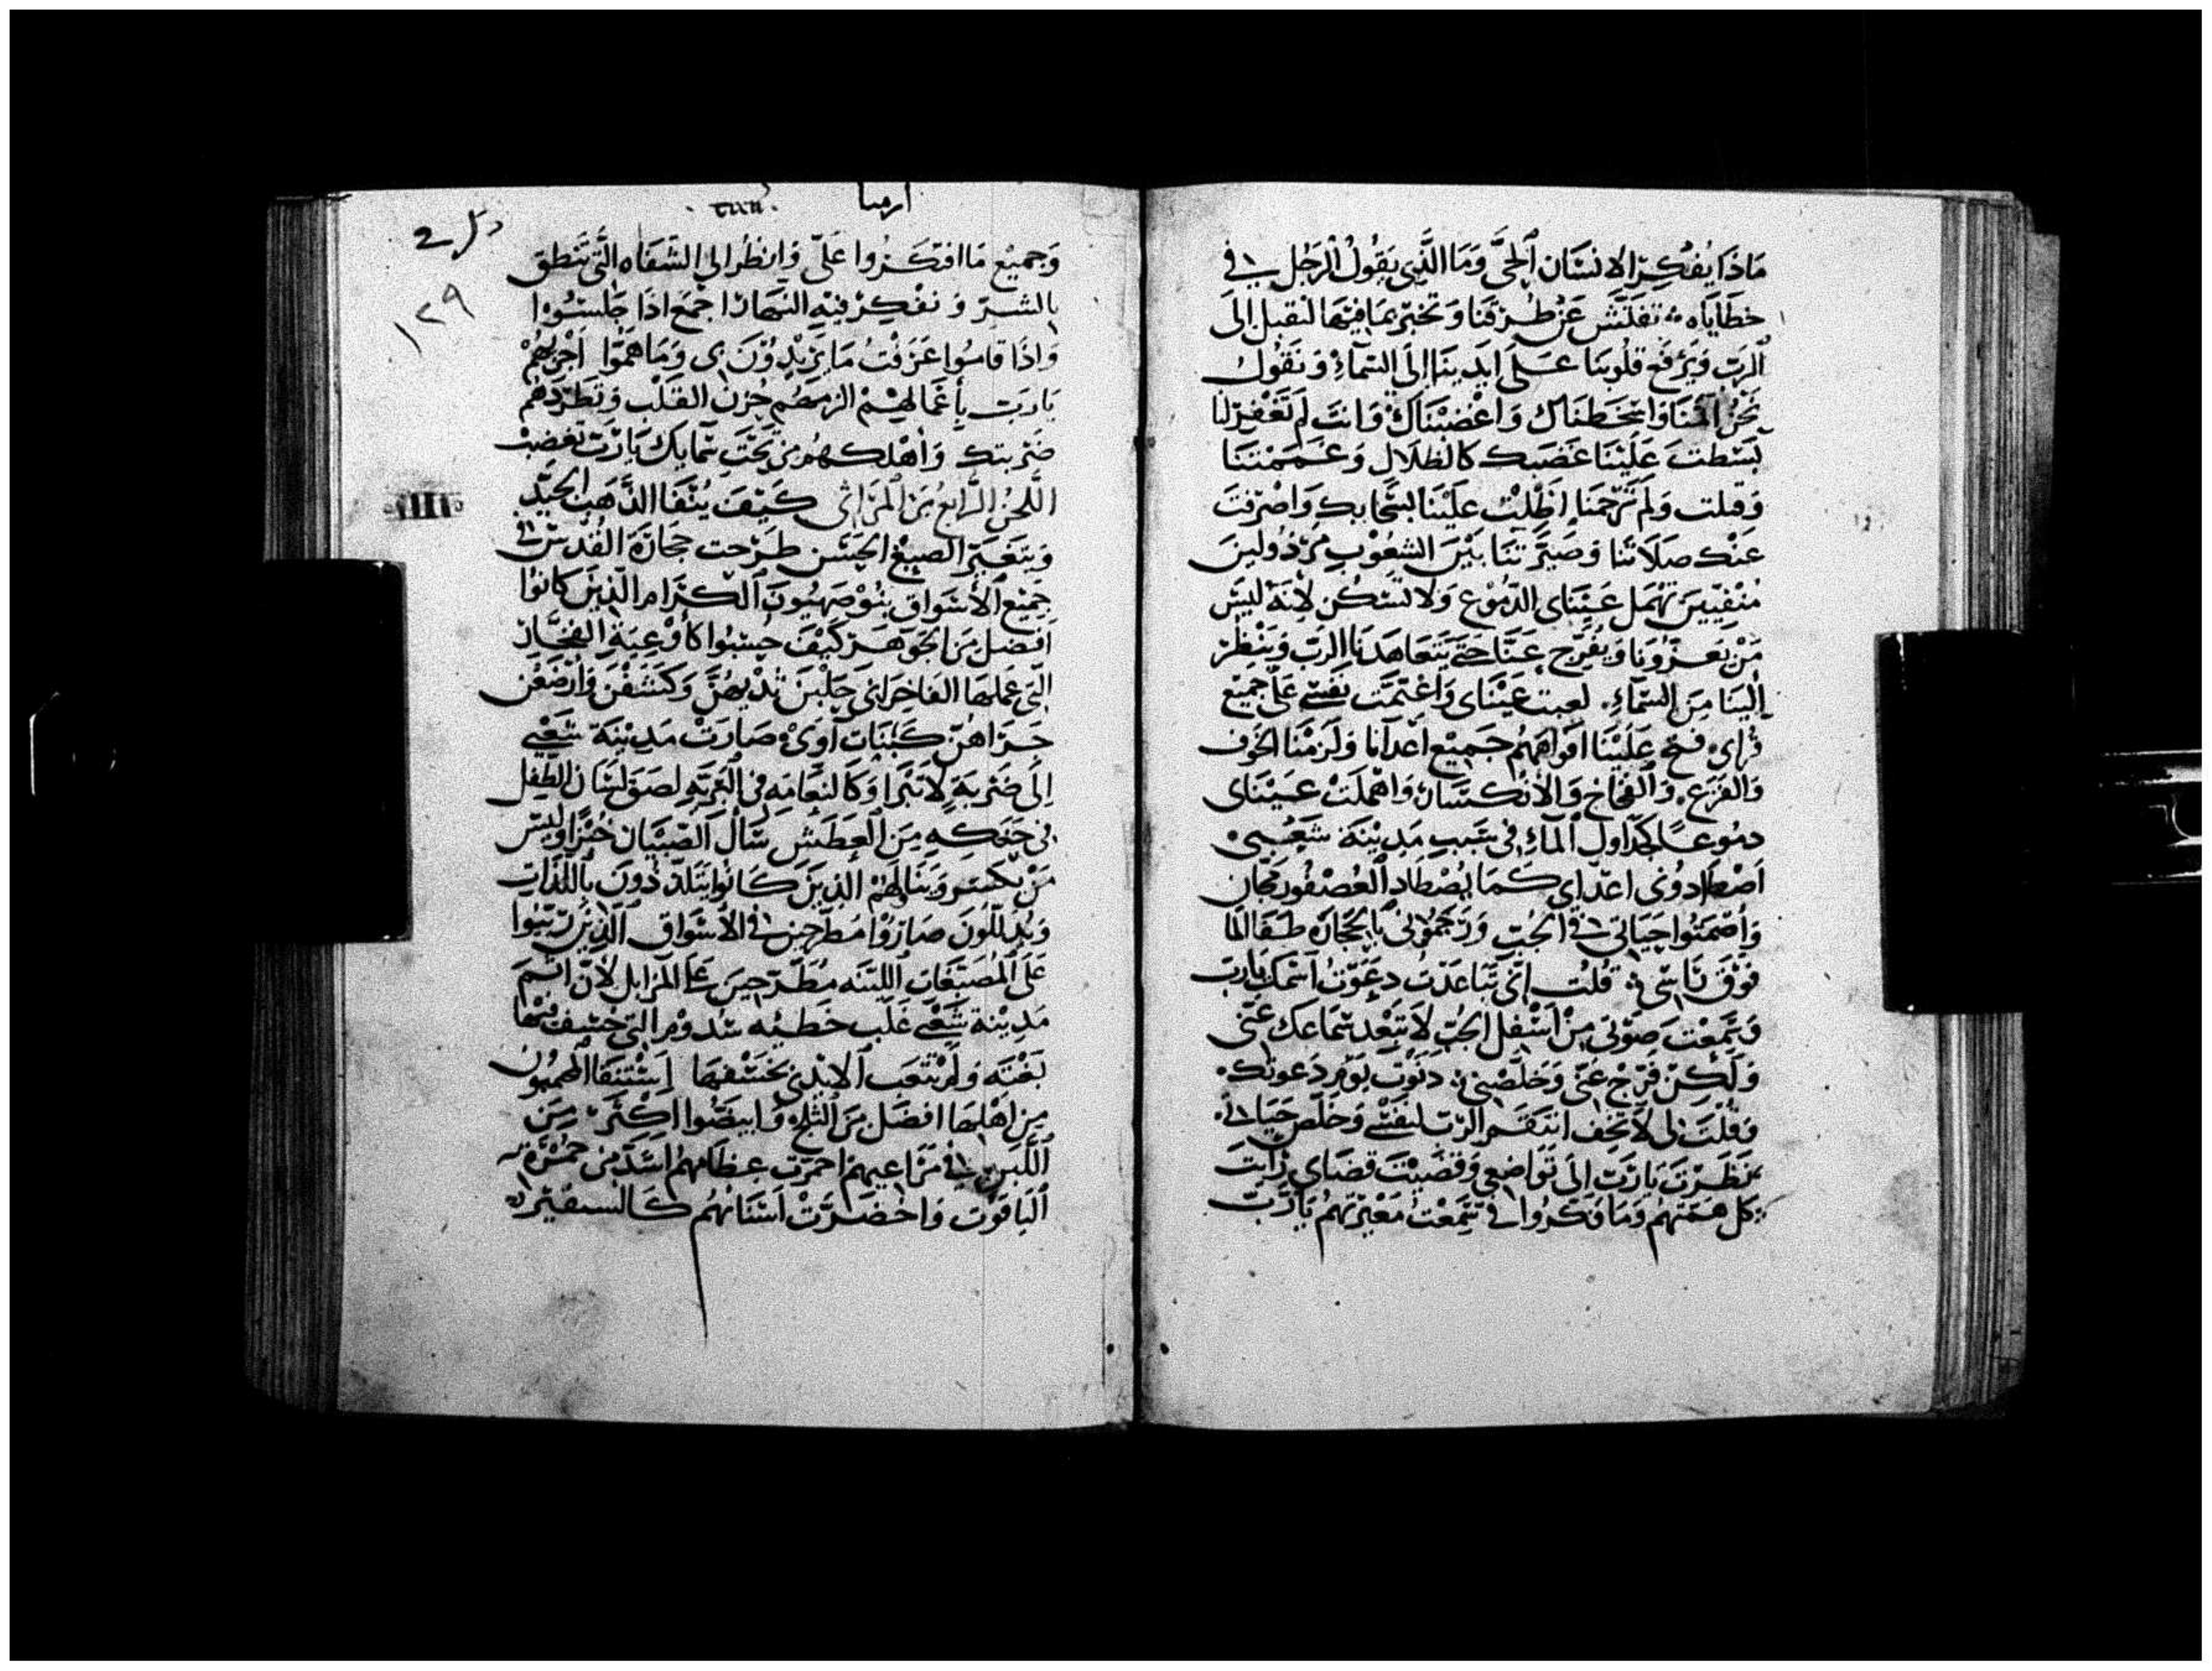 مَاذَا يُفَكِّر الانسَان الحَيّ وَمَا الَّذِي يَقُولُ الرَجُل في
خطَايَاه نفَتِّش عَن طُرقنَا وَنختبر بمَا فيهَا لنقبل الَى
الرَب وَنرفَع قلوبنَا عَلَى ايَدينَا الَى السَمآءِ وَنقُول
نَحْنُ اثمنَا وَاسْخطنَاك وَاغْضَبْنَاكَ وَانتَ لم تَغْفِر لنَا
بَسَطتَ عَلَيْنَا غَضَبك كَالظلَال وَغَمَمْتنَا
وَقتلت وَلَم تَرْحَمنَا اظللت عَلَيْنَا بسَحَابك وَاصْرفتَ
عَنْك صَلَاتنَا وَصَيَّرتنَا بَيْنَ الشعُوْب مرْذُولينَ
مُنْفيينَ تَهمل عَيْنَاى الدّمُوع وَلَا تسْكُن لأَنه ليسَ
مَنْ يعَزّونَا وَيفَرّج عَنَّا حَتَّى يَتَعَاهَدنَا الرَب وَينْظر
إِلينَا مِنَ السَّمآءِ. لعبت عَيْنَاى وَاغتمَّت نَفسي عَلَى جَميع
قرَاى فتح عَلَيْنَا افوَاهَهُم جَميْع اعْدآنا وَلَزمْنَا الخَوف
وَالفزَع وَالفخَاخ وَالأنْكسَار وَاهملَت عَيْنَاى
دمُوعًا كجدَاول المآءِ في سَبب مَدِيْنَة شَعْبى
اصْطَادوُنى اعدَاي كَمَا يُصْطَاد العُصْفُور مجَان
وَاصْمَتُوا حَيَاتي في الجُب وَرَجَمُوْنى بالحجَارَة طفَا المَا
فَوْق رَاسي قُلْت إِنّي تبَاعَدت دعَوْتُ اسْمك يَارَب
وَسَمعْت صَوْتي مِنْ اسْفل الجُب لَا تبْعد سَماعك عَني
وَلَكِنْ فَرّجْ عَني وَخَلّصْني دنَوت يَوْم دَعوتك
وَقلْت لي لَا تخف انتَقَم الرَب لنَفْسي وَخَلّص حَيَاتي
نَظَرْت يَارَب الى تَوَاضعي وَقضَيْتَ قضَاي رَايتَ
كل هَمّتهُم وَمَا فكروُا في سَمِعْتَ مَعْيَرتهُم يَارَب
ارميا
١٢٩
وَجَميْع مَا افتكَرُوا عَلَيّ وَانظُر الى الشّفَاه الَّتى تَنطق
بالشرّ وَنفكر فيْهِ النهَار اجمَع اذَا جَلسُوا
وَاذَا قَامُوا عَرَفْت مَا يَريْدوْنَ بى وَمَا همّوا اجْزيهُمْ
يَارَب بأعْمَالهم الزمهم حُزن القَلْب وَتَطردهُمْ
ضَربتك وَاهْلكهُم مِن تَحْت سَمَايك يَارَب تغضب
اللَّحنُ الرَّابعُ مِنَ المَرَاثى كَيْفَ يُنْفَا الذَّهَب الجيِّد
وَيتغَيّر الصبْغ الحسَن طرَحت حجَارَة القُدْس في
جَميْع الأسْوَاق بنُوْ صَهْيُونَ الكرَام الذينَ كَانوُا
افضل منَ الجَوهَر كَيْفَ حُسبُوا كَأوْعيَة الفخَّار
الَّتى عَملهَا الفَاخرَانى حَلَبْنَ ثدْيهُنَّ وَكَشَفْنَ وَارْضَعْن
جَرَاهُنّ كَبَنَات آوَىْ صَارَتْ مَدِيْنَة شَعْبي
إِلَى ضَرْبَة لَا تَبرَا وَكَالنعَامَه فى البَرّيَّه لصَق لسَان الطّفْل
فى حَنَكه مِنَ العَطَش سَأل الصّبْيَان خُبْزًا وَليسَ
مَنْ يَكْسر وَينَاولهُمْ الذِينَ كَانُوا يتَلذّذُونَ باللّذَات
وَيُدَلَّلُونَ صَارُوُا مُطَرحينَ في الأسْوَاق الَّذِينَ ربّوا
عَلَى المُصَبّغَات اللّينَه مُطَرّحينَ عَلَى المَزَابل لأنّ اثم
مَدِيْنَة شَعْبي غَلَب خَطيّه سَدوْم التى خُسفت
بَغْتَه وَلَم تتعَب الايْدى بخَسْفهَا اسْتُنقا
مِن اهْلهَا افضَل مِنَ الثلْج وَابيضّوا اكثَر مِنَ
اللَّبن في مَرَاعيهمْ احمَرّت عظَامهُم اشَدّ مِن حُمْرَة
اليَاقوُت وَاخضَرّتْ اسْنَانهُم كَالسفير